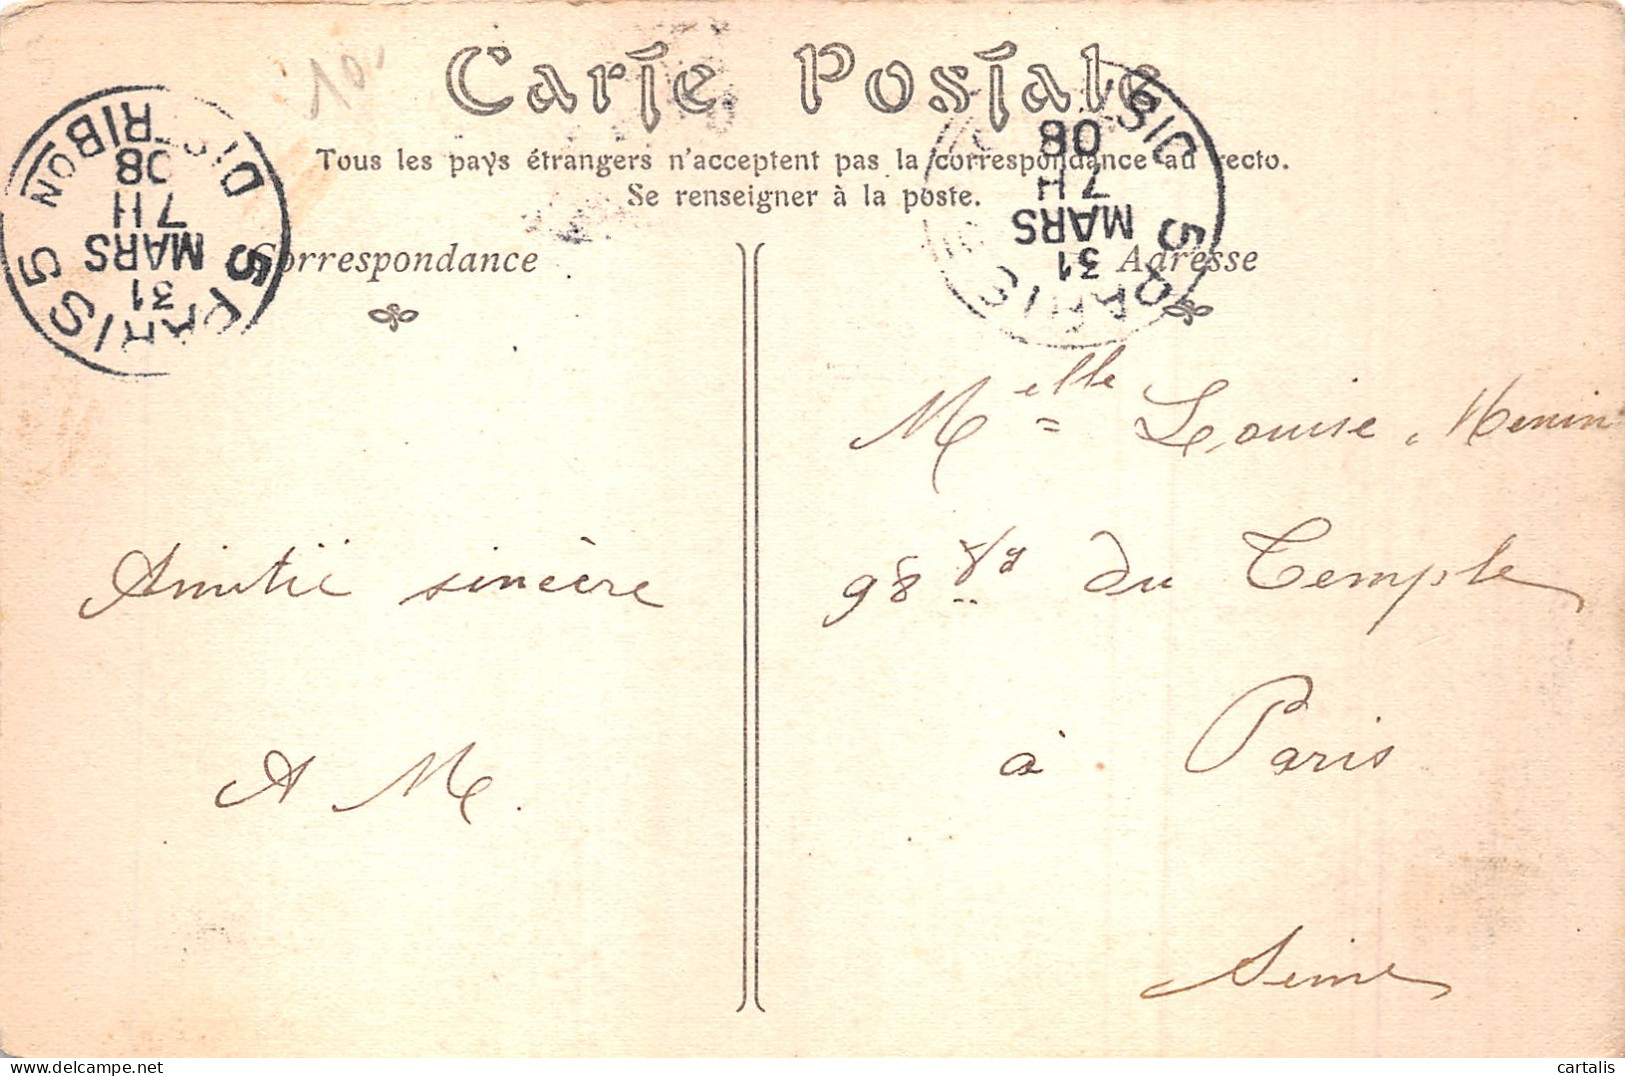 10'
Carte Postale
Tous les pays étrangers n'acceptent pas la correspondance au recto.
Se renseigner à la poste.
PARIS 5 DISTRIBON 5
31
MARS
7H
08
PARIS 5 DIS
31
MARS
7H
08
Correspondance
Adresse
Melle Louise Menin
98 du Temple
à Paris
Seine
Amitié sincère
A M.
cartalis